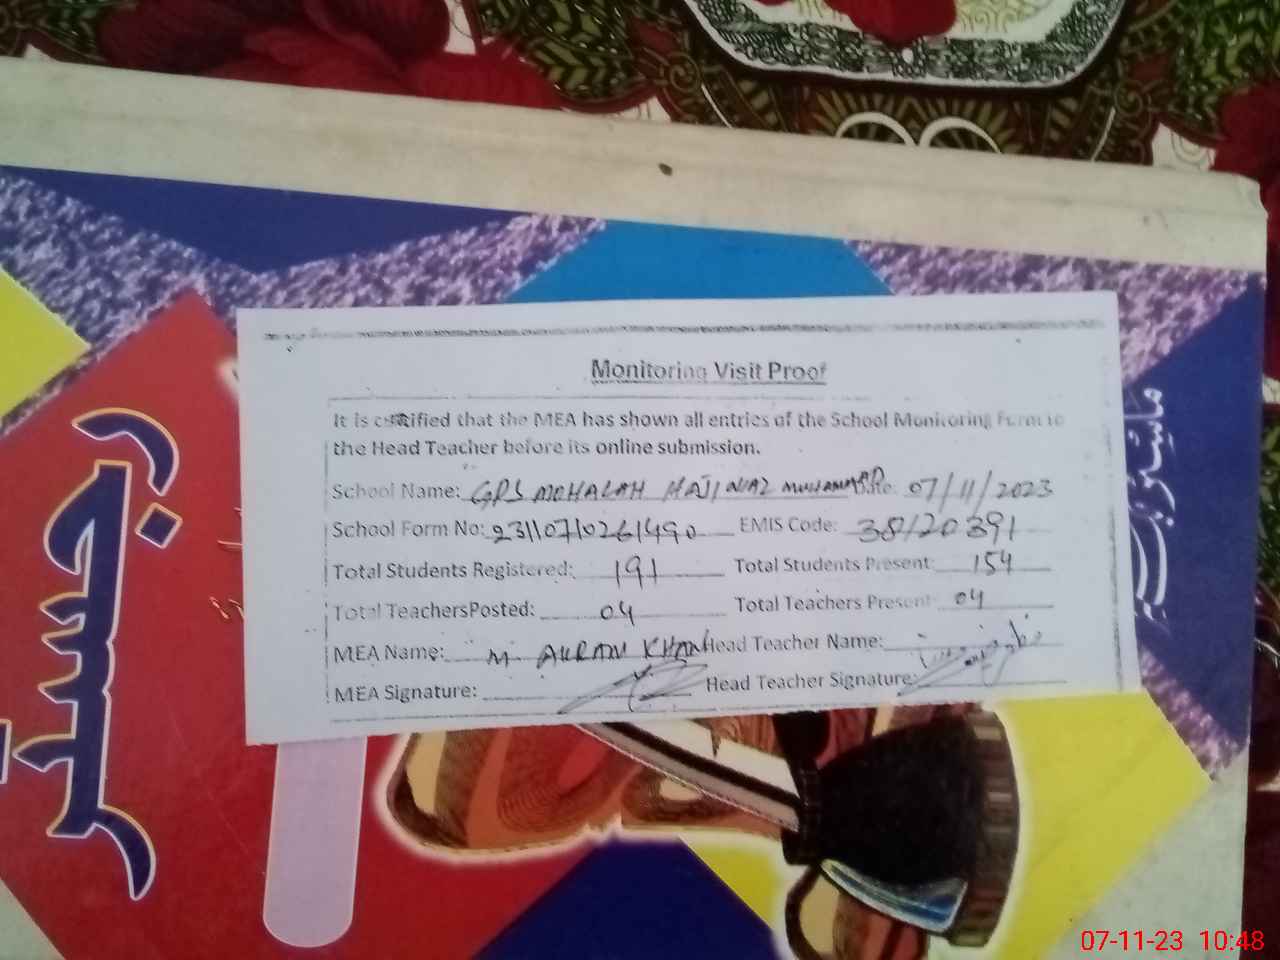 Monitoring Visit Proof
It is certified that the MEA has shown all entries of the School Monitoring Form to
the Head Teacher before its online submission.
School Name: GPS MOHALAH HAJI NIAZ MUHAMMAD Date: 07/11/2023
School Form No: 23110710261490 EMIS Code: 38120391
Total Students Registered: 191 Total Students Present: 154
Total TeachersPosted: 04 Total Teachers Present: 04
MEA Name: M AKRAM KHAN Head Teacher Name:
MEA Signature: Head Teacher Signature:
رجسٹر
07-11-23 10:48